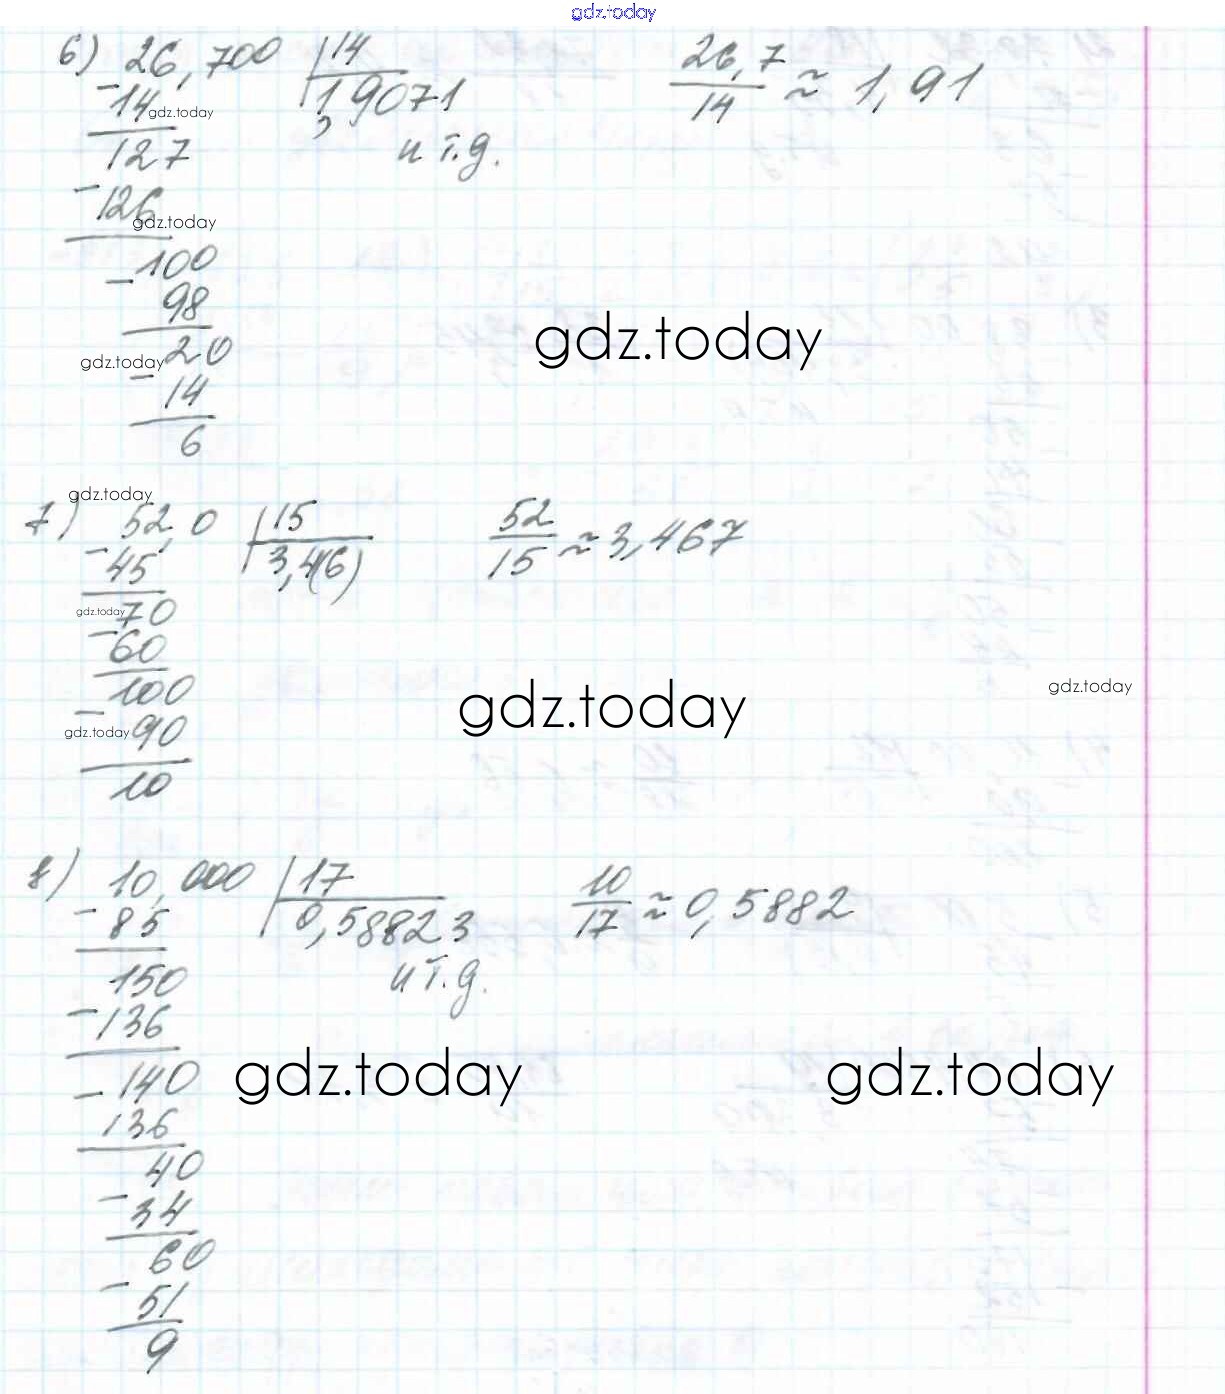 gdz.today
6) 26,700 | 14   26,7/14 ≈ 1,91
- 14   1,9071
gdz.today
127   и т.д.
- 126
gdz.today
- 100
98
gdz.today
20
gdz.today
- 14
6
gdz.today
7) 52,0 | 15   52/15 ≈ 3,467
- 45   3,4(6)
gdz.today
70
- 60
100
gdz.today
gdz.today
- 90
gdz.today
10
8) 10,000 | 17   10/17 ≈ 0,5882
- 85   0,58823
150   и т.д.
- 136
gdz.today gdz.today
- 140
136
40
- 34
60
- 51
9